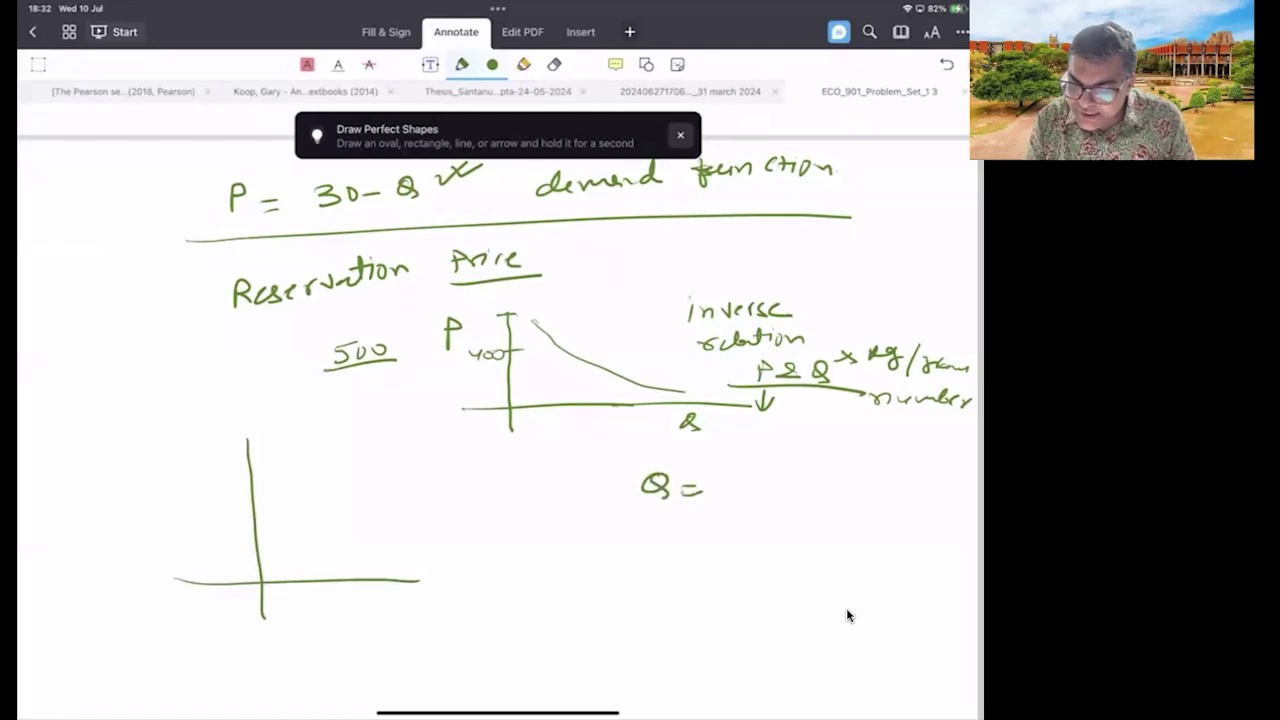 18:32 Wed 10 Jul
82%
Start
Fill & Sign Annotate Edit PDF Insert
[The Pearson se...(2018, Pearson) Koop, Gary - An...extbooks (2014) Thesis_Santanu...pta-24-05-2024 202406271706..._31 march 2024 ECO_901_Problem_Set_1 3
Draw Perfect Shapes
Draw an oval, rectangle, line, or arrow and hold it for a second
P = 30 - Q demand function
Reservation Price
inverse
relation
500 P 400
P & Q kg/gram
number
Q
Q =